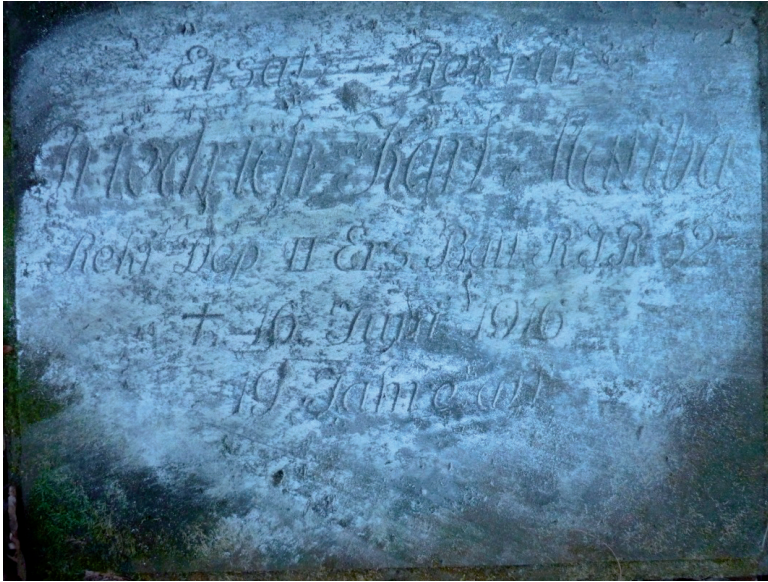 Ersatz Rekrut
Friedrich Karl
Rekr Dep II Ers. Batl R.I.R
† 16. Juni 1916
19 Jahre alt